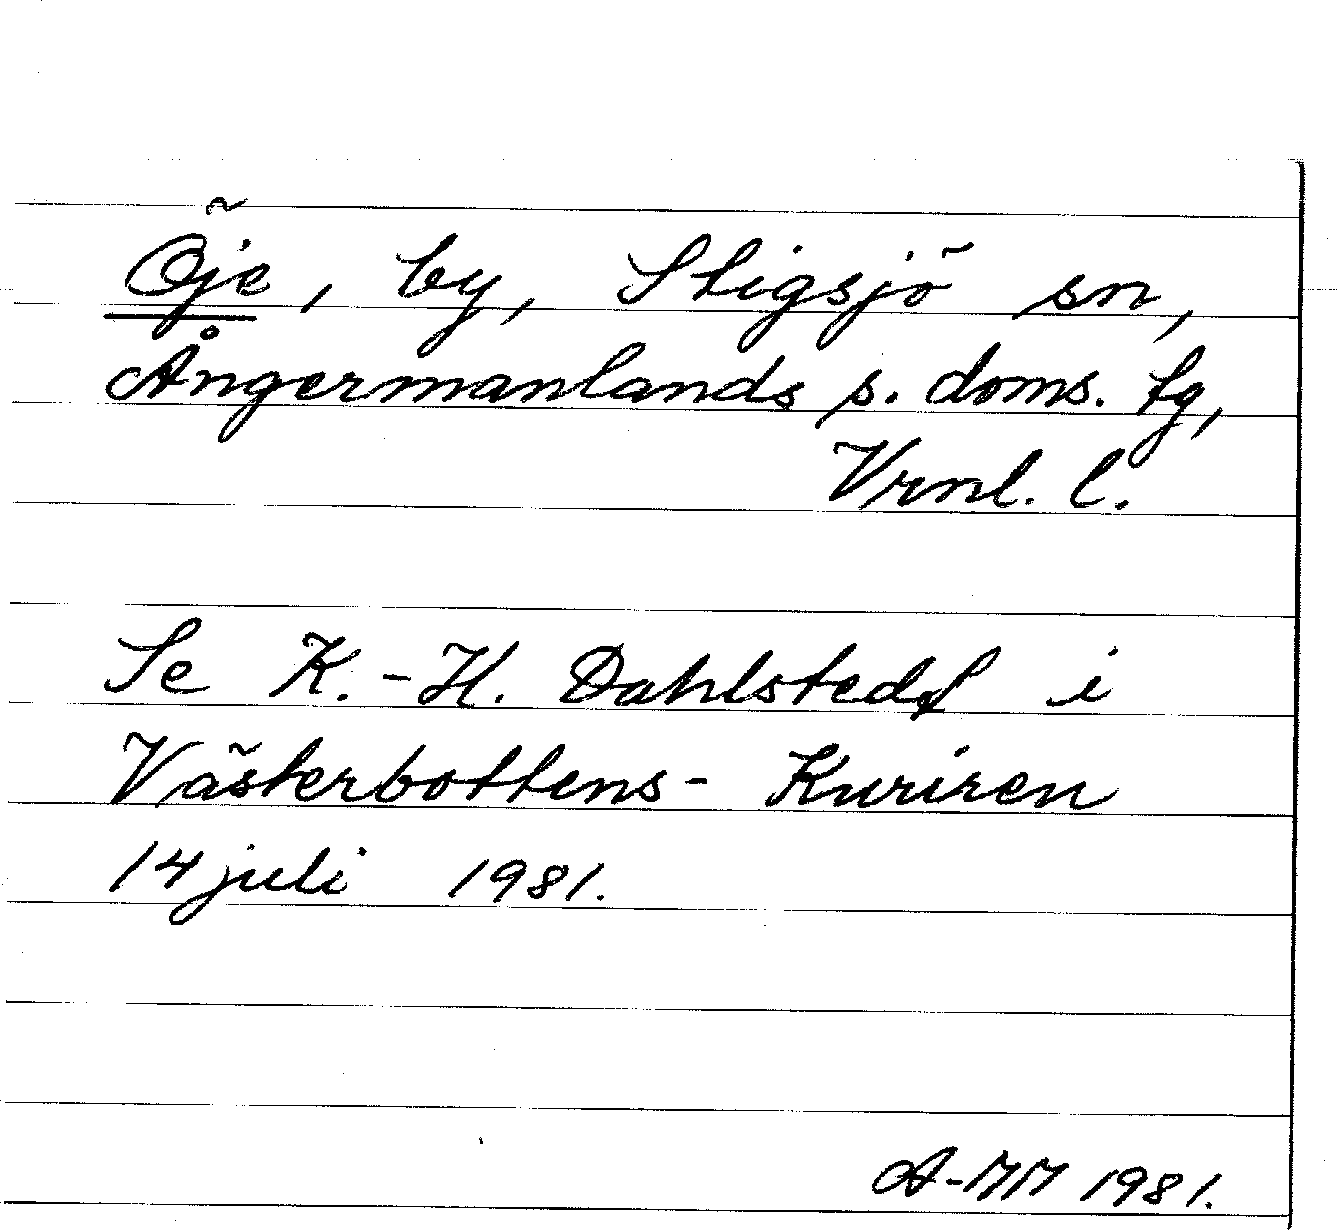 Öje, by, Stigsjö sn,
Ångermanlands s. doms. tg,
Vrnl. l.
Se K.-H. Dahlstedt i
Västerbottens-Kuriren
14 juli 1981.
A-MM 1981.